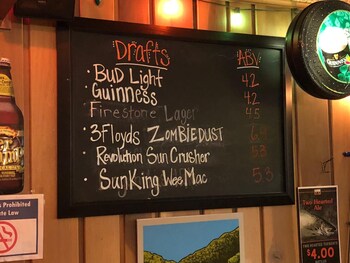 Drafts ABV
• BUD Light 4.2
• GUINNESS 4.2
Firestone Lager 4.5
• 3Floyds ZOMBIEDUST
• Revolution Sun Crusher 5.3
• SunKing Wee Mac 5.3
Prohibited
te Law
Two Hearted
Ale
$4.00